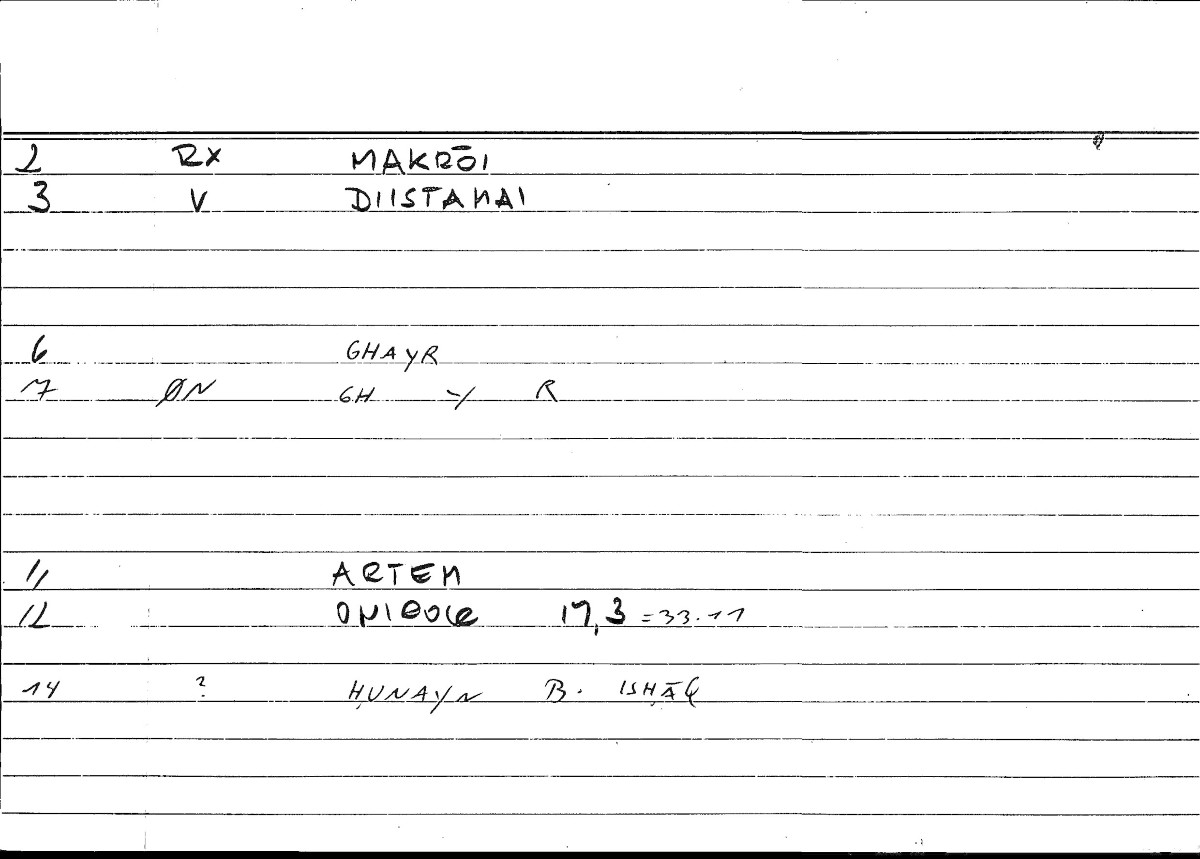 2 RX MAKRŌI
3 V DIISTAMAI
6 GHAYR
7 ØN GH -Y R
11 ARTEM
12 ONIROCR 17,3 =33.11
14 ? ḤUNAYN B. ISḤĀQ